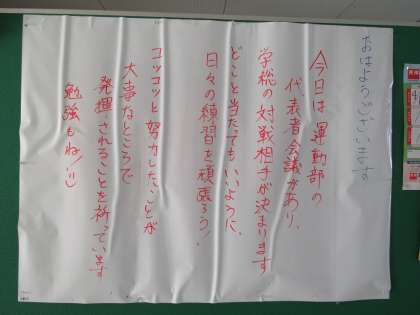 おはようございます
今日は運動部の
代表者会議があり、
学総の対戦相手が決まります
どこと当たってもいいように、
日々の練習を頑張ろう!
コツコツと努力したことが
大事なところで
発揮されることを祈っています
勉強もね!!